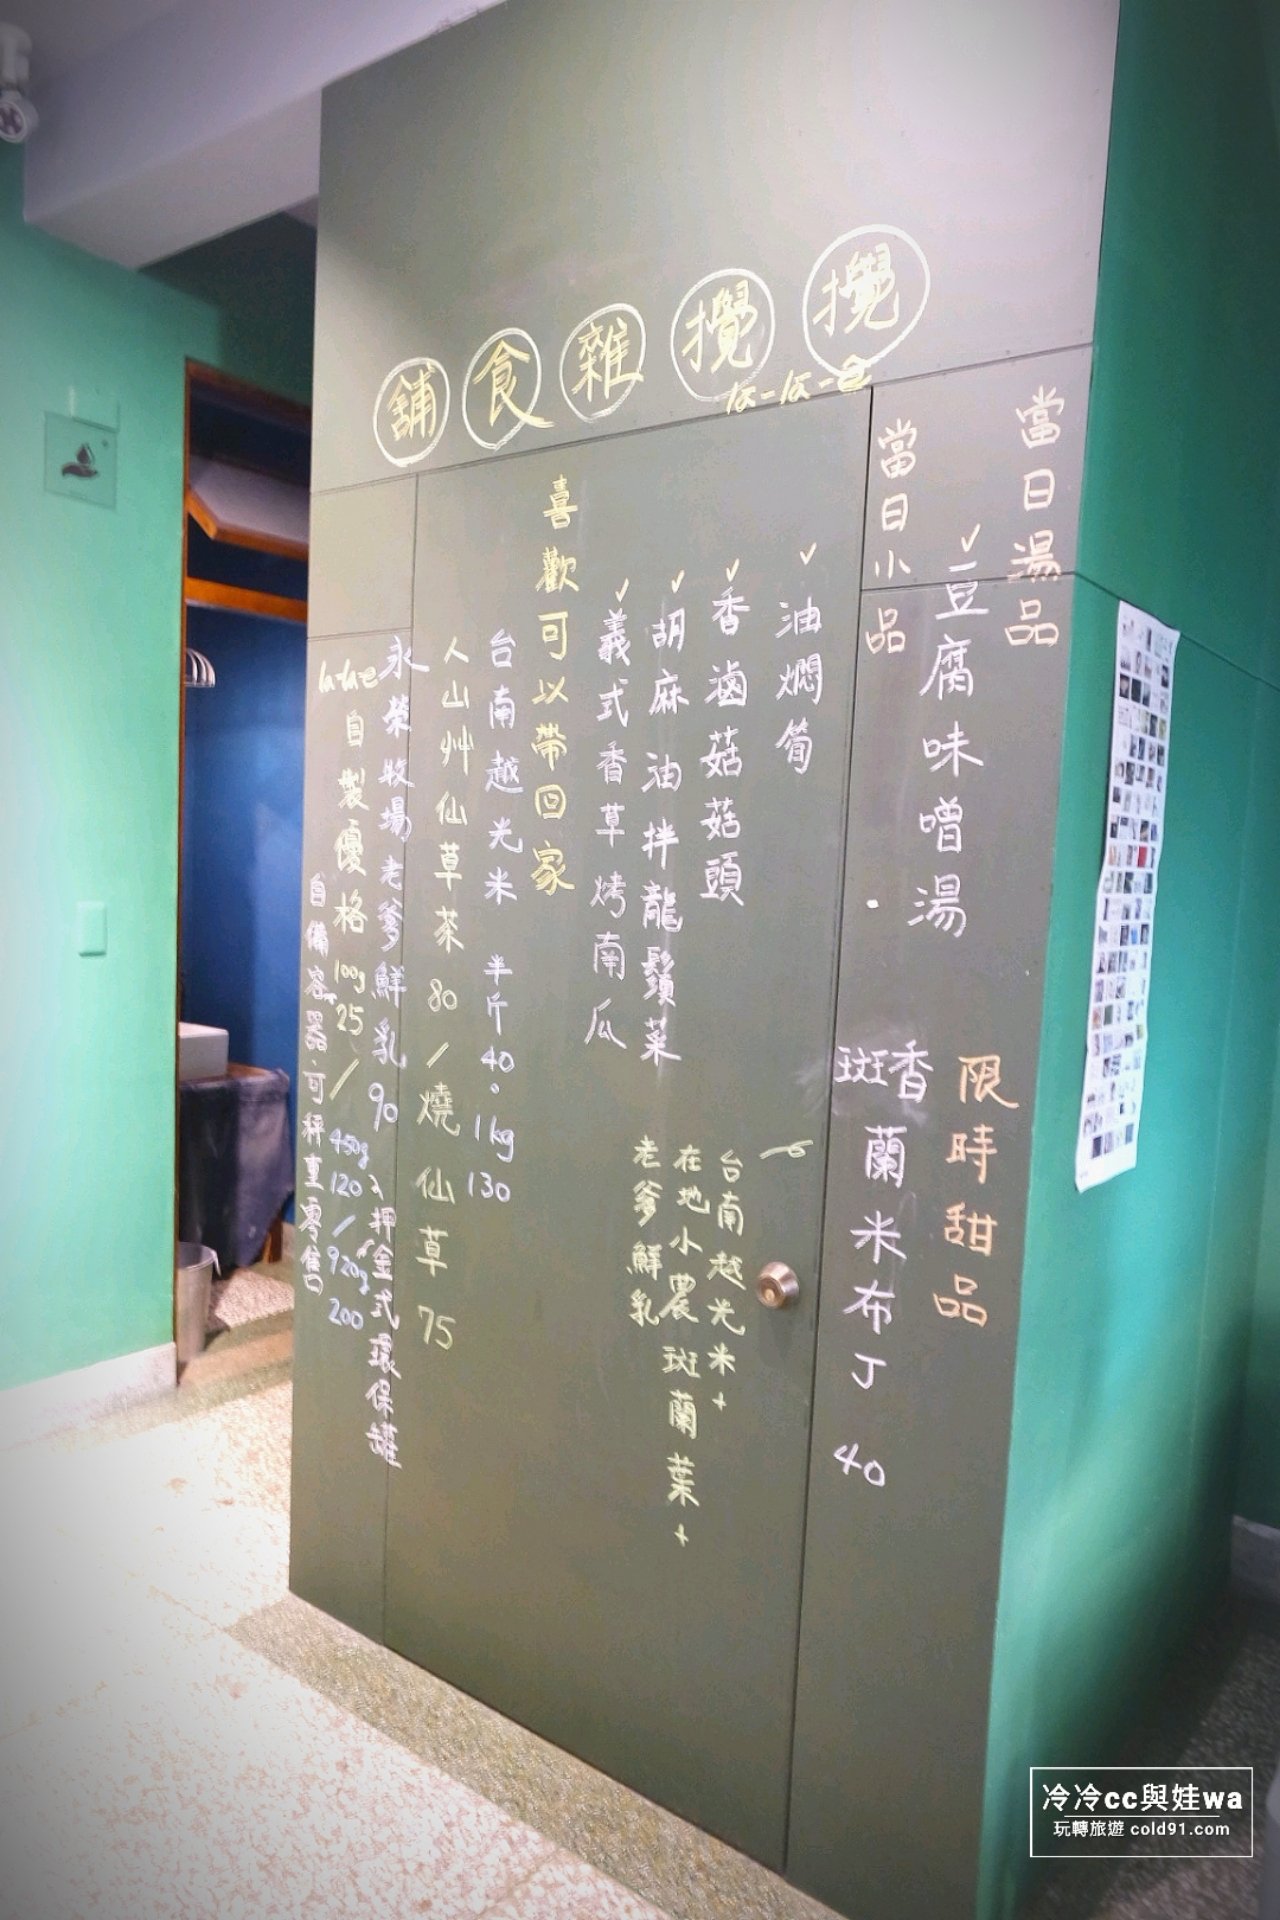 攪攪雜食舖
la-la-e
當日湯品
豆腐味噌湯
限時甜品
香斑蘭米布丁 40
當日小品
油燜筍
香滷菇菇頭
胡麻油拌龍鬚菜
義式香草烤南瓜
台南越光米+
在地小農斑蘭葉+
老爹鮮乳
喜歡可以帶回家
台南越光米 半斤40。1kg 130
人山艸仙草茶 80/燒仙草 75
永榮牧場老爹鮮乳 90
押金式環保罐
la-la-e自製優格 100g 25/450g 120/920g 200
自備容器·可秤重零售
冷冷cc與娃wa
玩轉旅遊 cold91.com